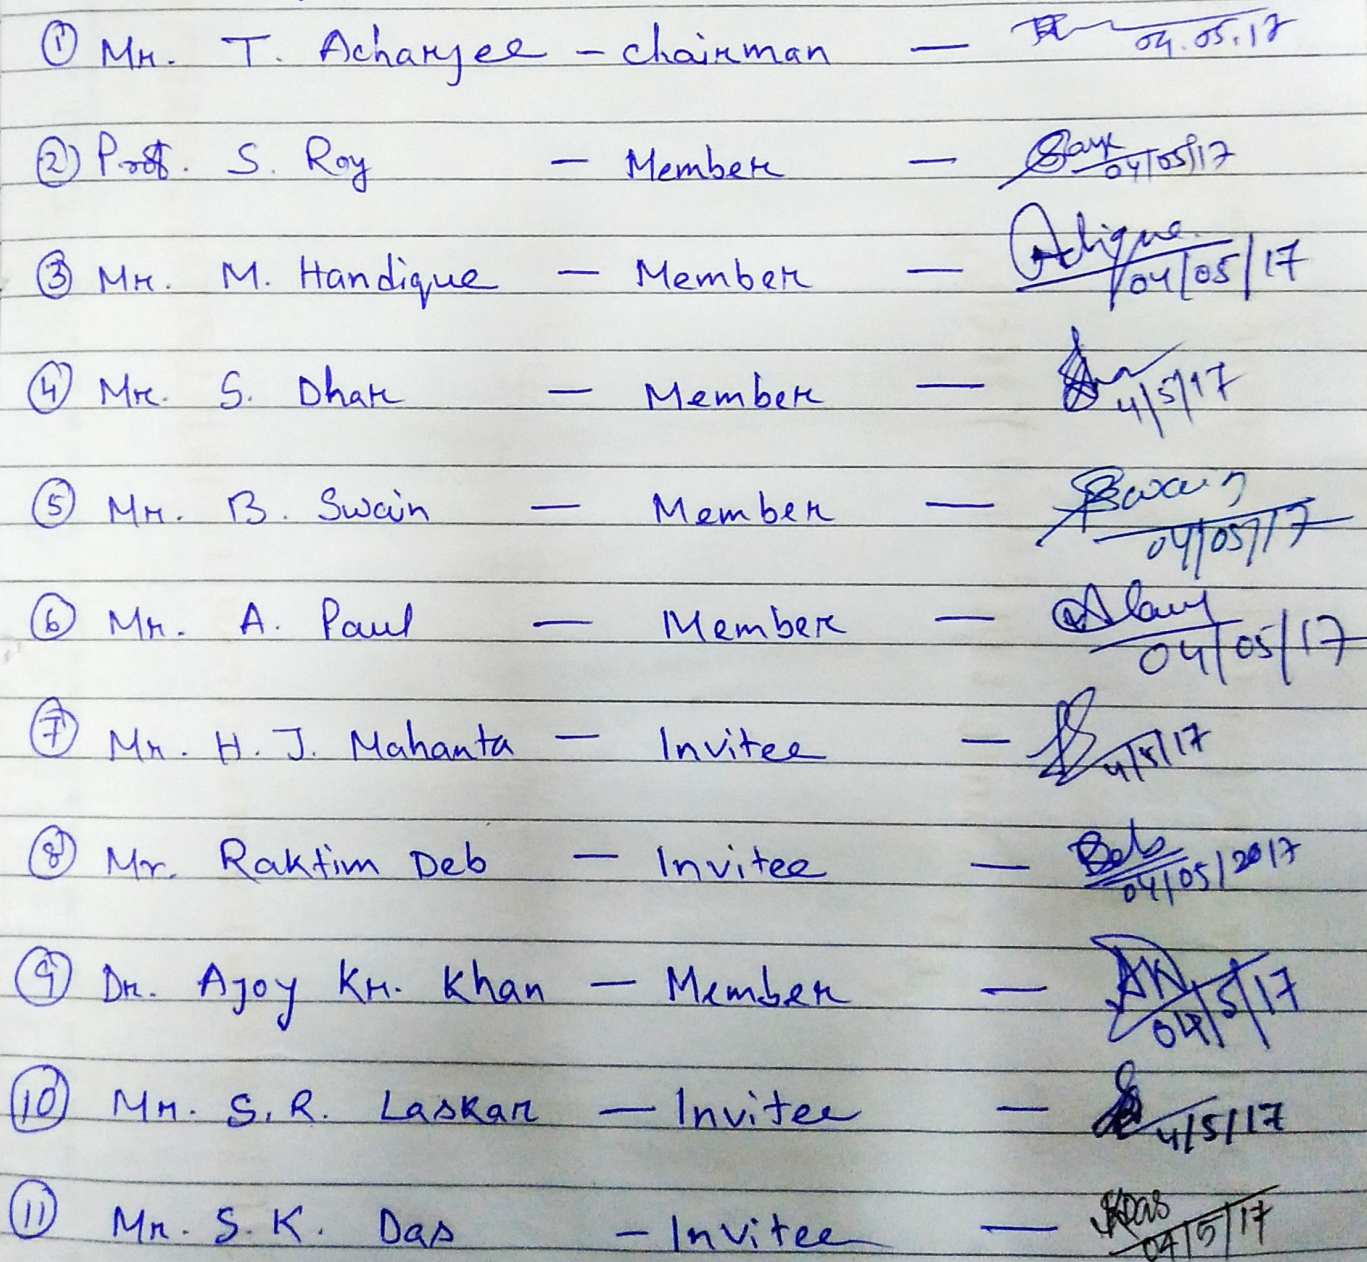 ① Mr. T. Acharjee - chairman — 04.05.17
② Prof. S. Roy — Member — 04/05/17
③ Mr. M. Handique — Member — 04/05/17
④ Mr. S. Dhar — Member — 4/5/17
⑤ Mr. B. Swain — Member — BSwain 04/05/17
⑥ Mr. A. Paul — Member — 04/05/17
⑦ Mr. H. J. Mahanta — Invitee — 4/5/17
⑧ Mr. Raktim Deb — Invitee — Deb 04/05/2017
⑨ Dr. Ajoy Kr. Khan — Member — 04/5/17
⑩ Mr. S. R. Laskar — Invitee — 4/5/17
⑪ Mr. S. K. Das — Invitee — SKDas 04/5/17